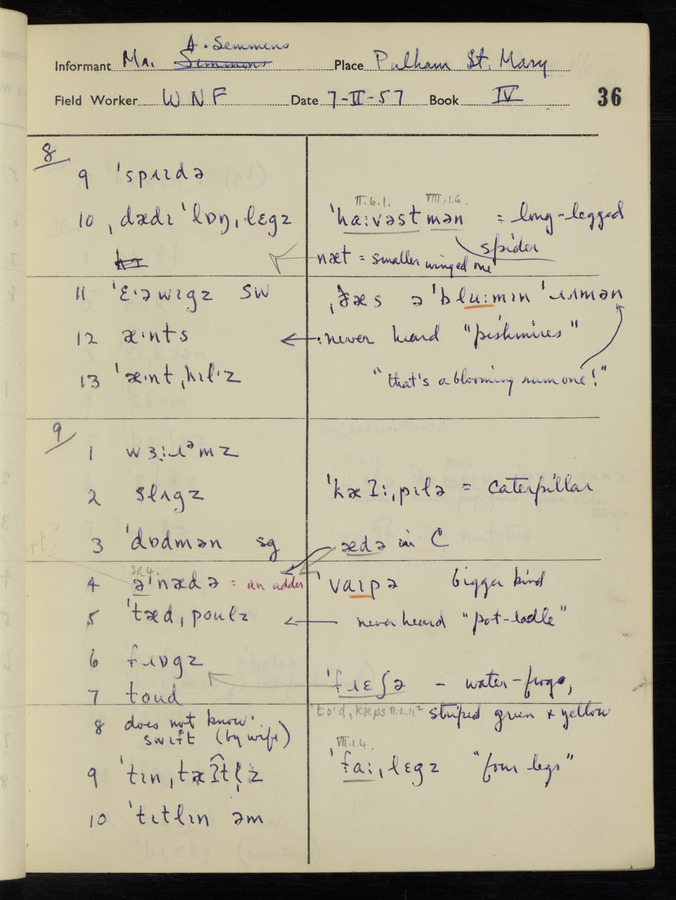 A. Semmens
Informant Mr. Simmons Place Pulham St. Mary
Field Worker WNF Date 7-II-57 Book IV 36
8
9 ˈspɹɪdə
II.6.1. VIII.1.6.
10 ˌdædɪ ˈlɒŋˌlɛgz ˈhaːvəst mən = long-legged spider
næt = smaller winged one
11 ˈɛ·əwɪgz sw ˌðæs ə ˈbluːmɪn ˈɹʌmən
12 æ·nts ← never heard "pishmires"
13 ˈæ·ntˌhɪl·z "that's a blooming rum one!"
9
1 wɜːɹəmz
2 slʌgz ˈkæʔɪːˌpɪlə = caterpillar
3 ˈdɒdmən sg ædə in C
4 əˈnædə = an adder ˈvaɪpə bigger kind
5 ˈtædˌpoulz ← never heard "pot-ladle"
6 fɹɒgz
7 toud ˈfɹɛʃə – water-frogs,
striped green & yellow
8 does not know.
swift (by wife)
VII.1.4.
9 ˈtɪnˌtæʔtl̩z ˈfaːˌlɛgz "four legs"
10 ˈtɪtlɪn əm